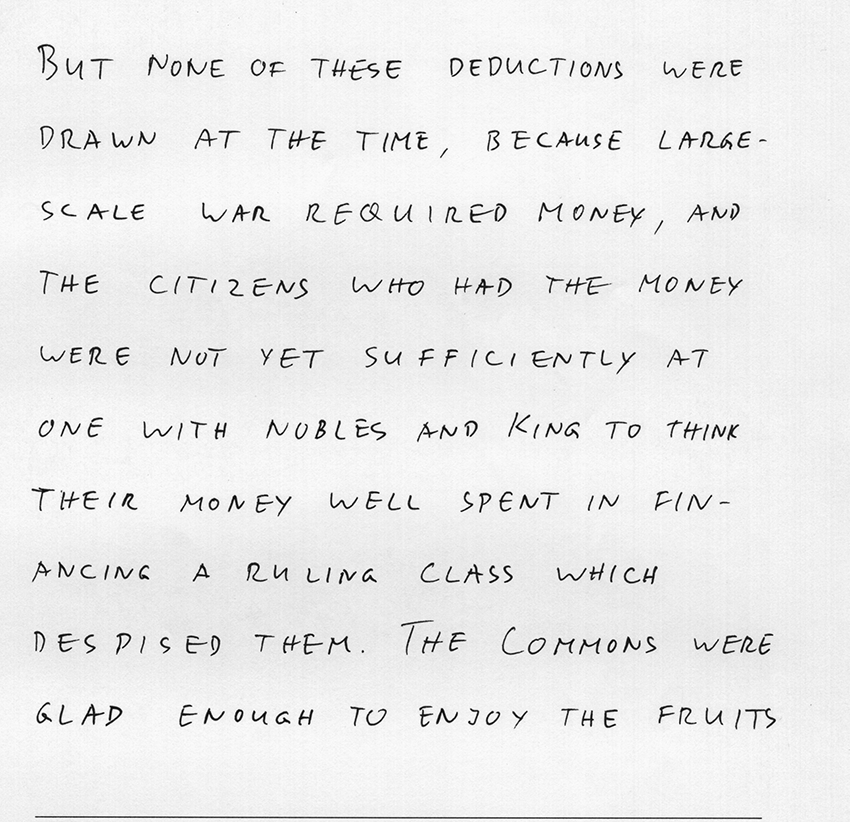 BUT NONE OF THESE DEDUCTIONS WERE
DRAWN AT THE TIME, BECAUSE LARGE-
SCALE WAR REQUIRED MONEY, AND
THE CITIZENS WHO HAD THE MONEY
WERE NOT YET SUFFICIENTLY AT
ONE WITH NOBLES AND KING TO THINK
THEIR MONEY WELL SPENT IN FIN-
ANCING A RULING CLASS WHICH
DESPISED THEM. THE COMMONS WERE
GLAD ENOUGH TO ENJOY THE FRUITS